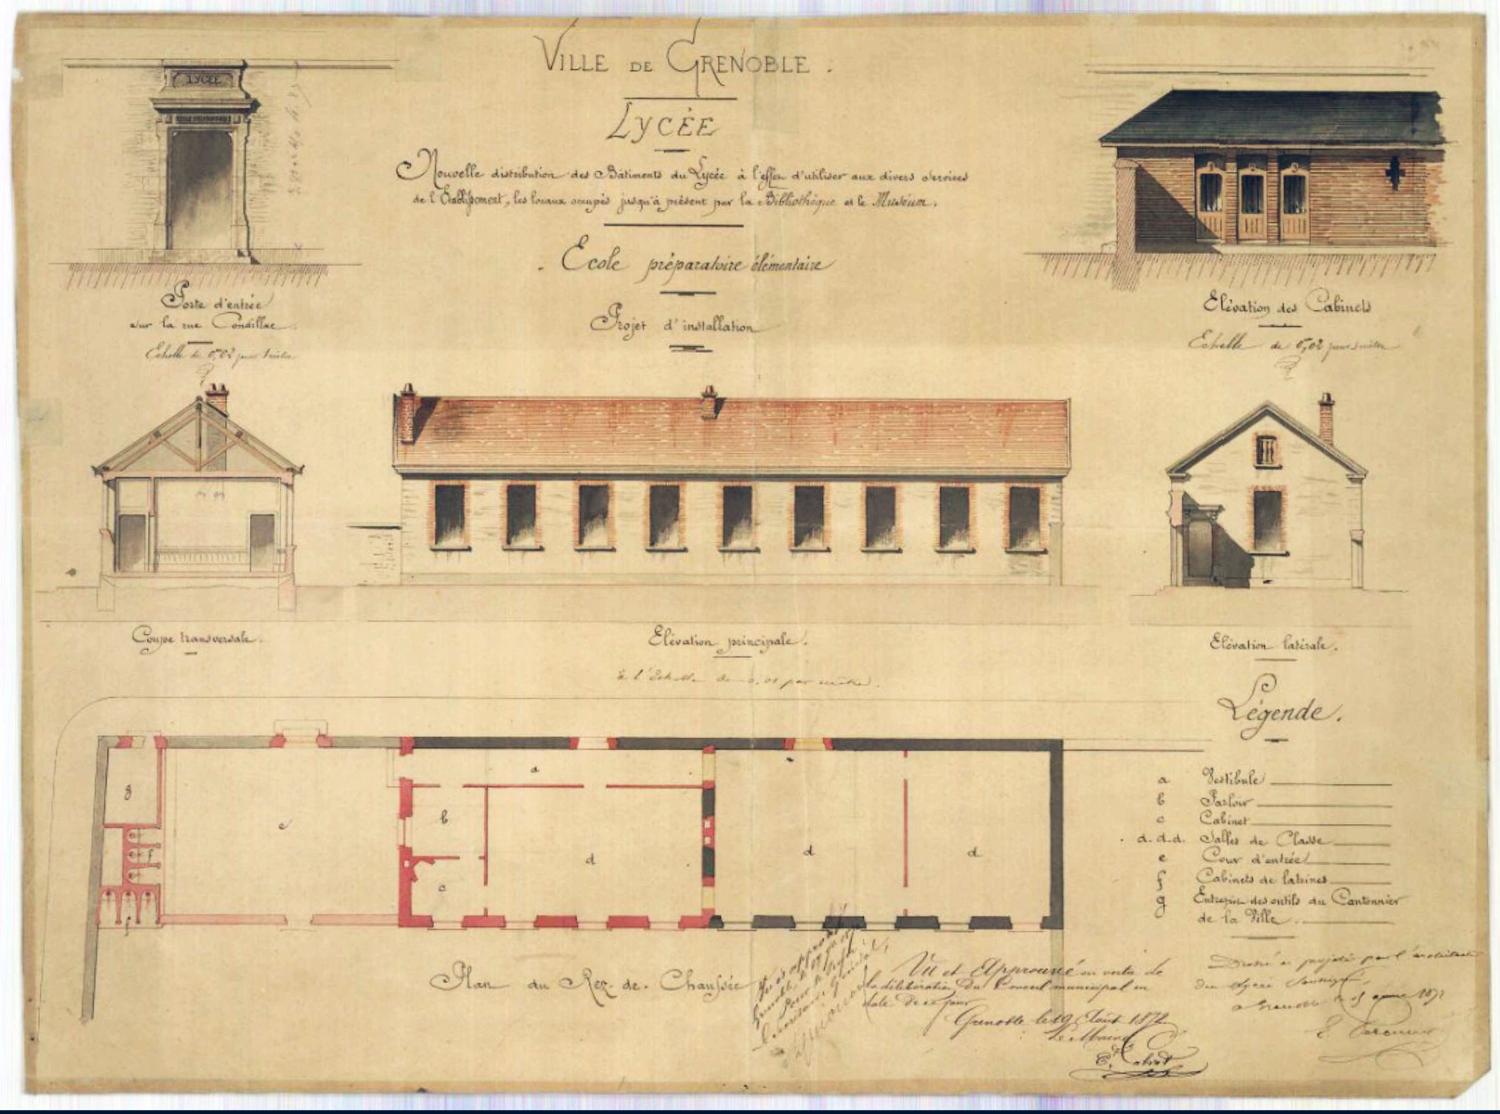 VILLE DE GRENOBLE.
LYCÉE
Nouvelle distribution des Bâtiments du Lycée à l'effet d'utiliser aux divers services
de l'Etablissement, les locaux occupés jusqu'à présent par la Bibliothèque et le Muséum.
Ecole préparatoire élémentaire
Projet d'installation
LYCÉE
Porte d'entrée
sur la rue Condillac.
Echelle de 0,02 pour 1 mètre
Elévation des Cabinets
Echelle de 0,02 pour 1 mètre
Coupe transversale.
Elévation principale.
Elévation latérale.
à l'Echelle de 0,01 par mètre.
g
f
f
e
a
b
c
d
d
d
Légende.
a Vestibule
b Parloir
c Cabinet
d.d.d. Salles de Classe
e Cour d'entrée
f Cabinets de latrines
g Entrepôt des outils du Cantonnier
de la Ville.
Plan du Rez-de-Chaussée
Vu et Approuvé en vertu de
la délibération du Conseil municipal en
date de ce jour
Grenoble le 19 Août 1872
Le Maire
Dressé et projeté par l'architecte
du Lycée soussigné.